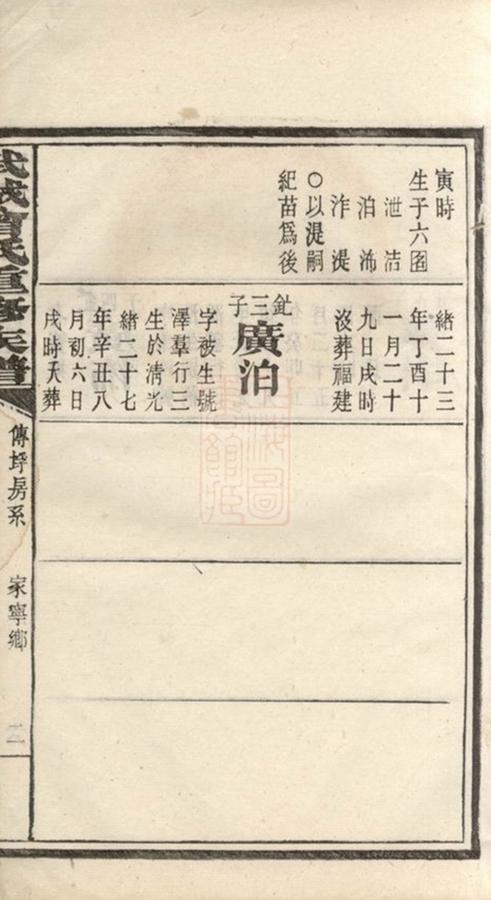 寅時
生于六囹
泄洁
泊沸
泎湜
○以湜嗣
紀苗為後
緒二十三
年丁酉十
一月二十
九日戌時
沒葬福建
釷三子
廣泊
字被生號
澤羣行三
生於清光
緒二十七
年辛丑八
月初六日
戌時夭葬
武城曾氏重修族譜
傳垺房系
家寧鄉